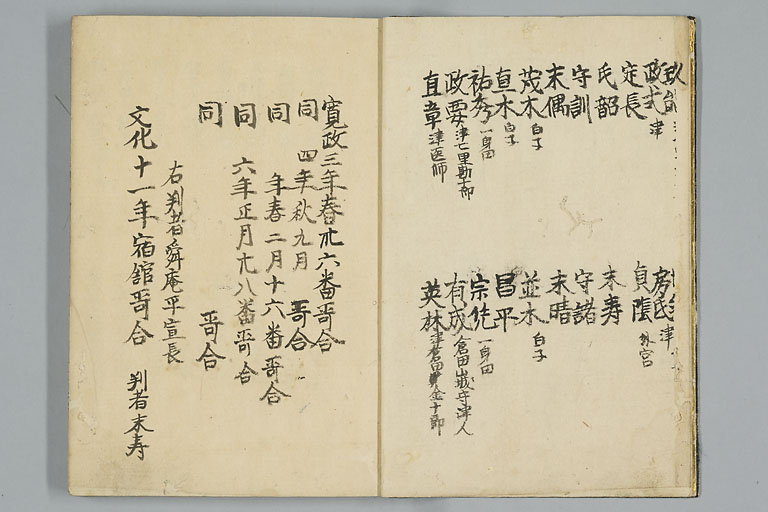 政式 津
定長
氏韶
守訓
末偶
茂木 白子
直木 白子
祐秀 一身田
政要 津七里勘十郎
直章 津医師
房氏 津
貞蔭 外宮
末寿
守諸
末晴
並木 白子
昌平
宗先 一身田
有成 倉田山城守津人
英林 津
寛政三年春廿六番哥合
同 四年秋九月 哥合
同 年春二月十六番哥合
同 六年正月廿八番哥合
同 哥合
右判者舜庵平宣長
文化十一年宿館哥合 判者末寿